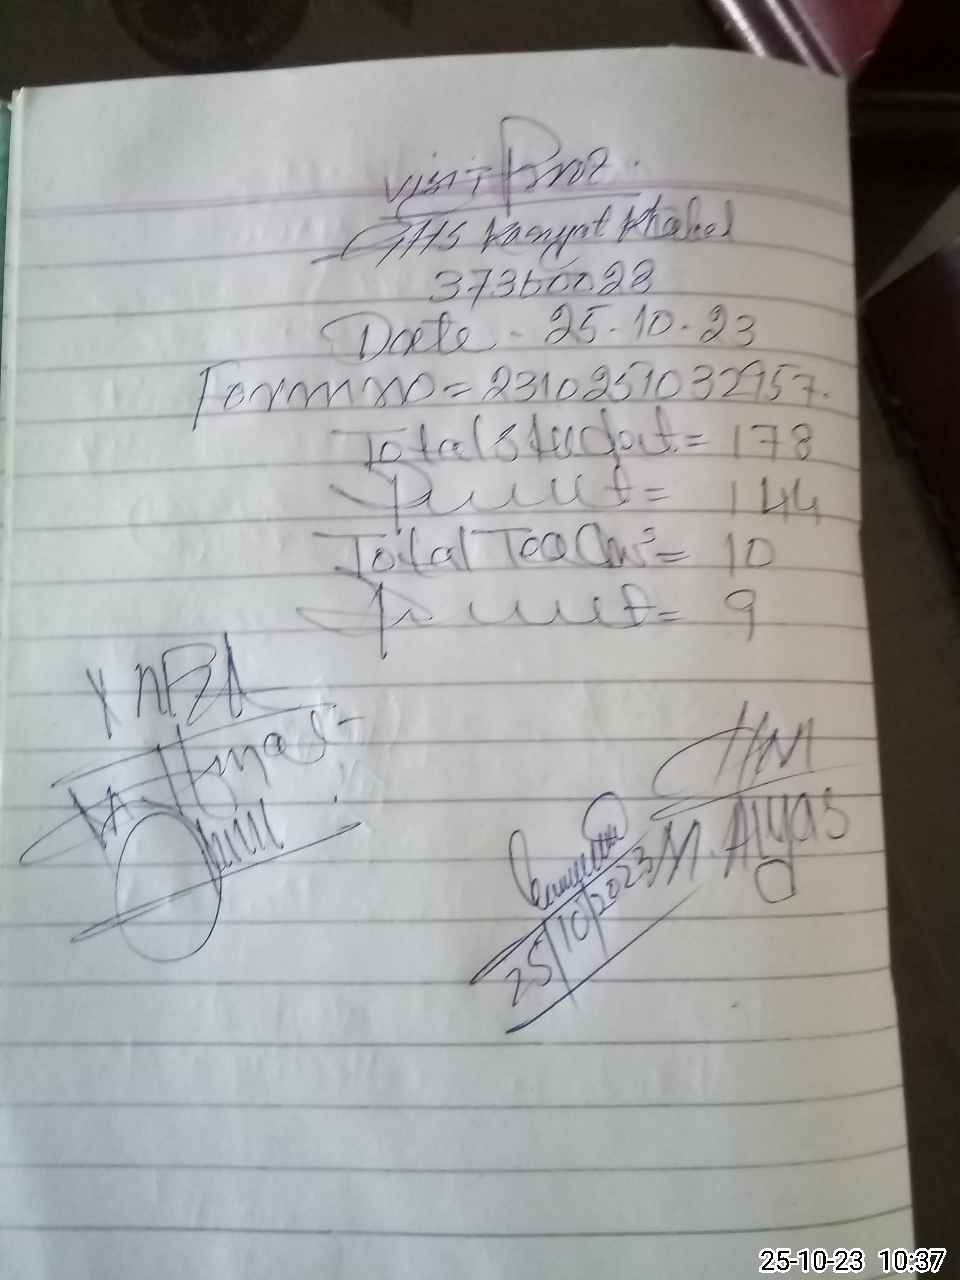 Visit Proof
GHS Kanyat Khalel
37360028
Date - 25-10-23
Form no = 2310251032957.
Total Student = 178
Present = 144
Total Teacher = 10
Present = 9
HM
M. Alyas
25/10/2023
25-10-23 10:37